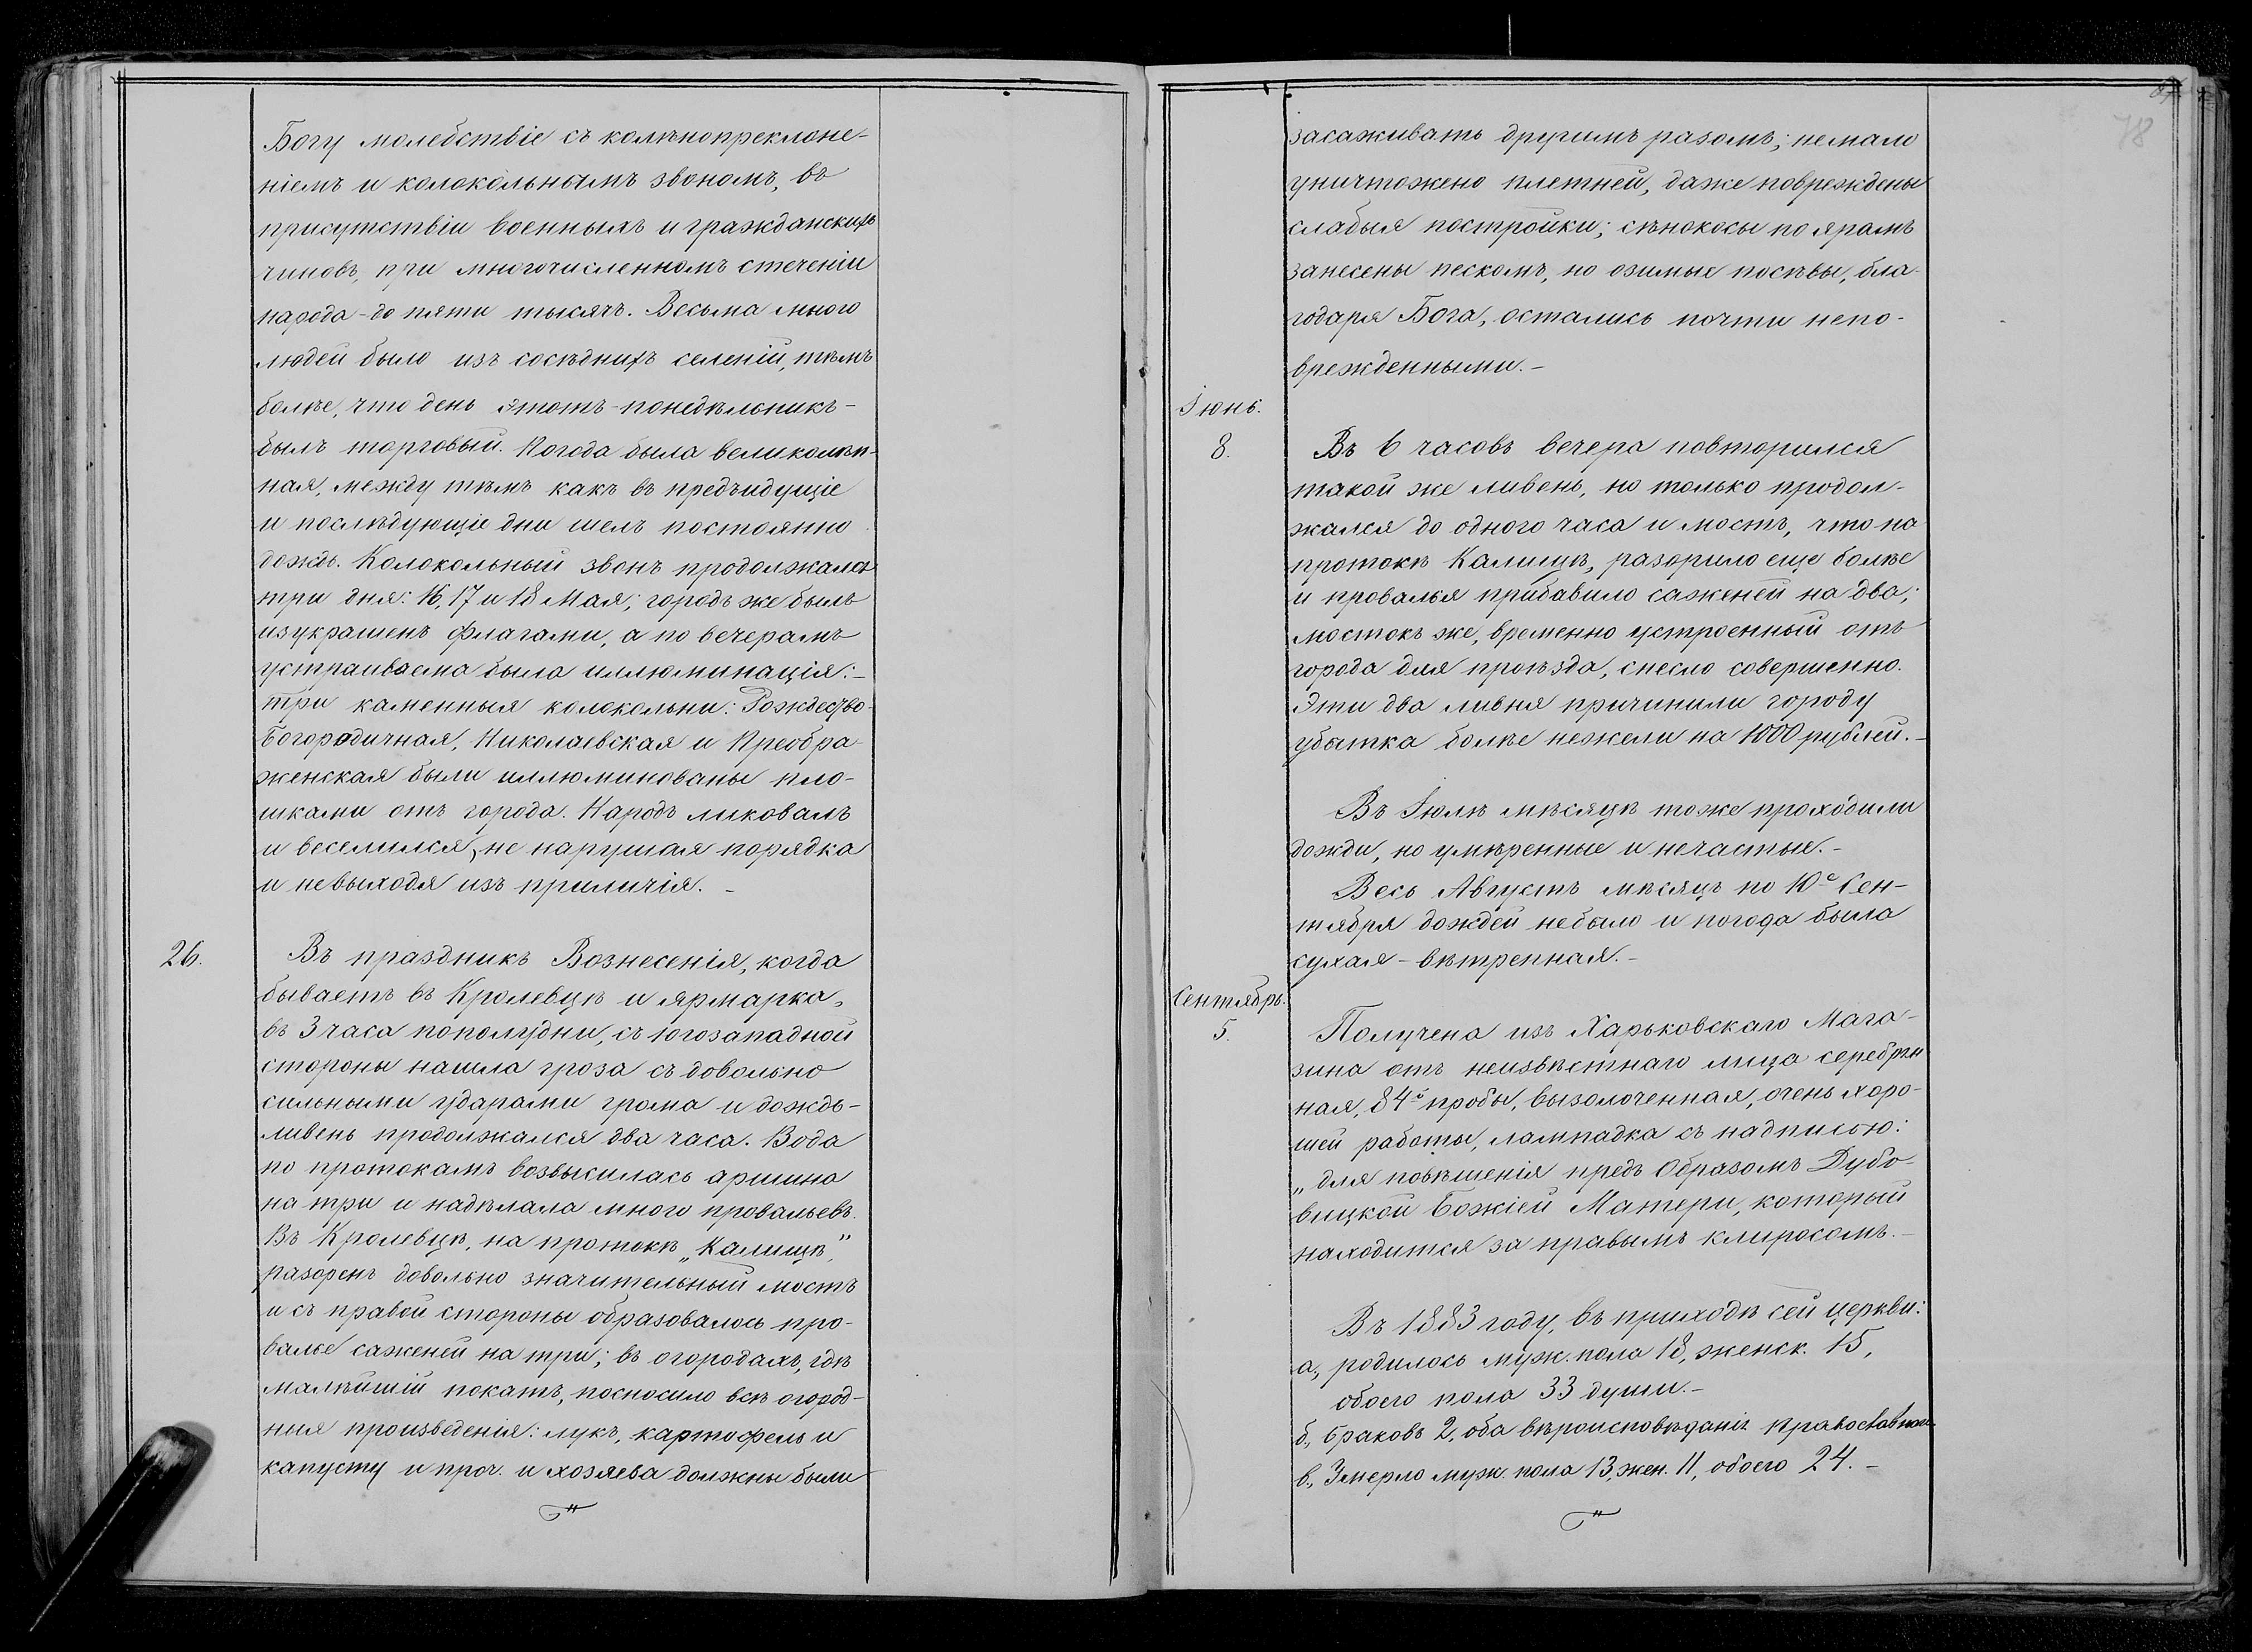 Богу молебствіе съ колѣнопреклоне-
ніемъ и колокольнымъ звономъ, въ
присутствіи военныхъ и гражданскихъ
чиновъ, при многочисленномъ стеченіи
народа - до пяти тысячъ. Весьма много
людей было изъ сосѣднихъ селеній, тѣмъ
болѣе, что день этотъ - понедѣльникъ -
былъ торговый. Погода была великолѣп-
ная, между тѣмъ какъ въ предъидущіе
и послѣдующіе дни шелъ постоянно
дождь. Колокольный звонъ продолжался
три дня: 16, 17 и 18 Мая; городъ же былъ
изукрашенъ флагами, а по вечерамъ
устраиваема была иллюминація: -
три каменныя колокольни: Рождество-
Богородичная, Николаевская и Преобра-
женская были иллюминованы пло-
шками отъ города. Народъ ликовалъ
и веселился, не нарушая порядка
и невыходя изъ приличія. -
26.
Въ праздникъ Вознесенія, когда
бываетъ въ Кролевцѣ и ярмарка,
въ 3 часа пополудни, съ югозападной
стороны нашла гроза съ довольно
сильными ударами грома и дождь -
ливень продолжался два часа. Вода
по протокамъ возвысилась аршина
на три и надѣлала много провальевъ.
Въ Кролевцѣ, на протокѣ „Калищѣ,"
разоренъ довольно значительный мостъ
и съ правой стороны образовалось про-
валье саженей на три; въ огородахъ, гдѣ
малѣйшій покатъ, посносило всѣ огород-
ныя произведенія: лукъ, картофель и
капусту и проч. и хозяева должны были
78
засаживать другимъ разомъ; немало
уничтожено плетней, даже повреждены
слабыя постройки; сѣнокосы по ярамъ
занесены пескомъ, но озимые посѣвы, бла-
годаря Бога, остались почти непо-
врежденными. -
Іюнь.
8.
Въ 6 часовъ вечера повторился
такой же ливень, но только продол-
жался до одного часа и мостъ, что на
протокѣ Калищѣ, разорило еще болѣе
и провалья прибавило саженей на два;
мостокъ же, временно устроенный отъ
города для проѣзда, снесло совершенно.
Эти два ливня причинили городу
убытка болѣе нежели на 1000 рублей. -
Въ Іюлѣ мѣсяцѣ тоже проходили
дожди, но умѣренные и нечастые. -
Весь Августъ мѣсяцъ по 10е Сен-
тября дождей небыло и погода была
сухая - вѣтренная. -
Сентябрь.
5.
Получена изъ Харьковскаго Мага-
зина отъ неизвѣстнаго лица серебрян
ная, 84й пробы, вызолоченная, очень хоро-
шей работы, лампадка съ надписью:
„для повѣшенія предъ Образомъ Дубо-
вицкой Божіей Матери, который
находится за правымъ клиросомъ. -
Въ 1883 году, въ приходѣ сей церкви:
а., родилось муж. пола 18, женск. 15,
обоего пола 33 души. -
б., браковъ 2, оба вѣроисповѣданія православнаго
в., Умерло муж. пола 13, жен. 11, обоего 24. -